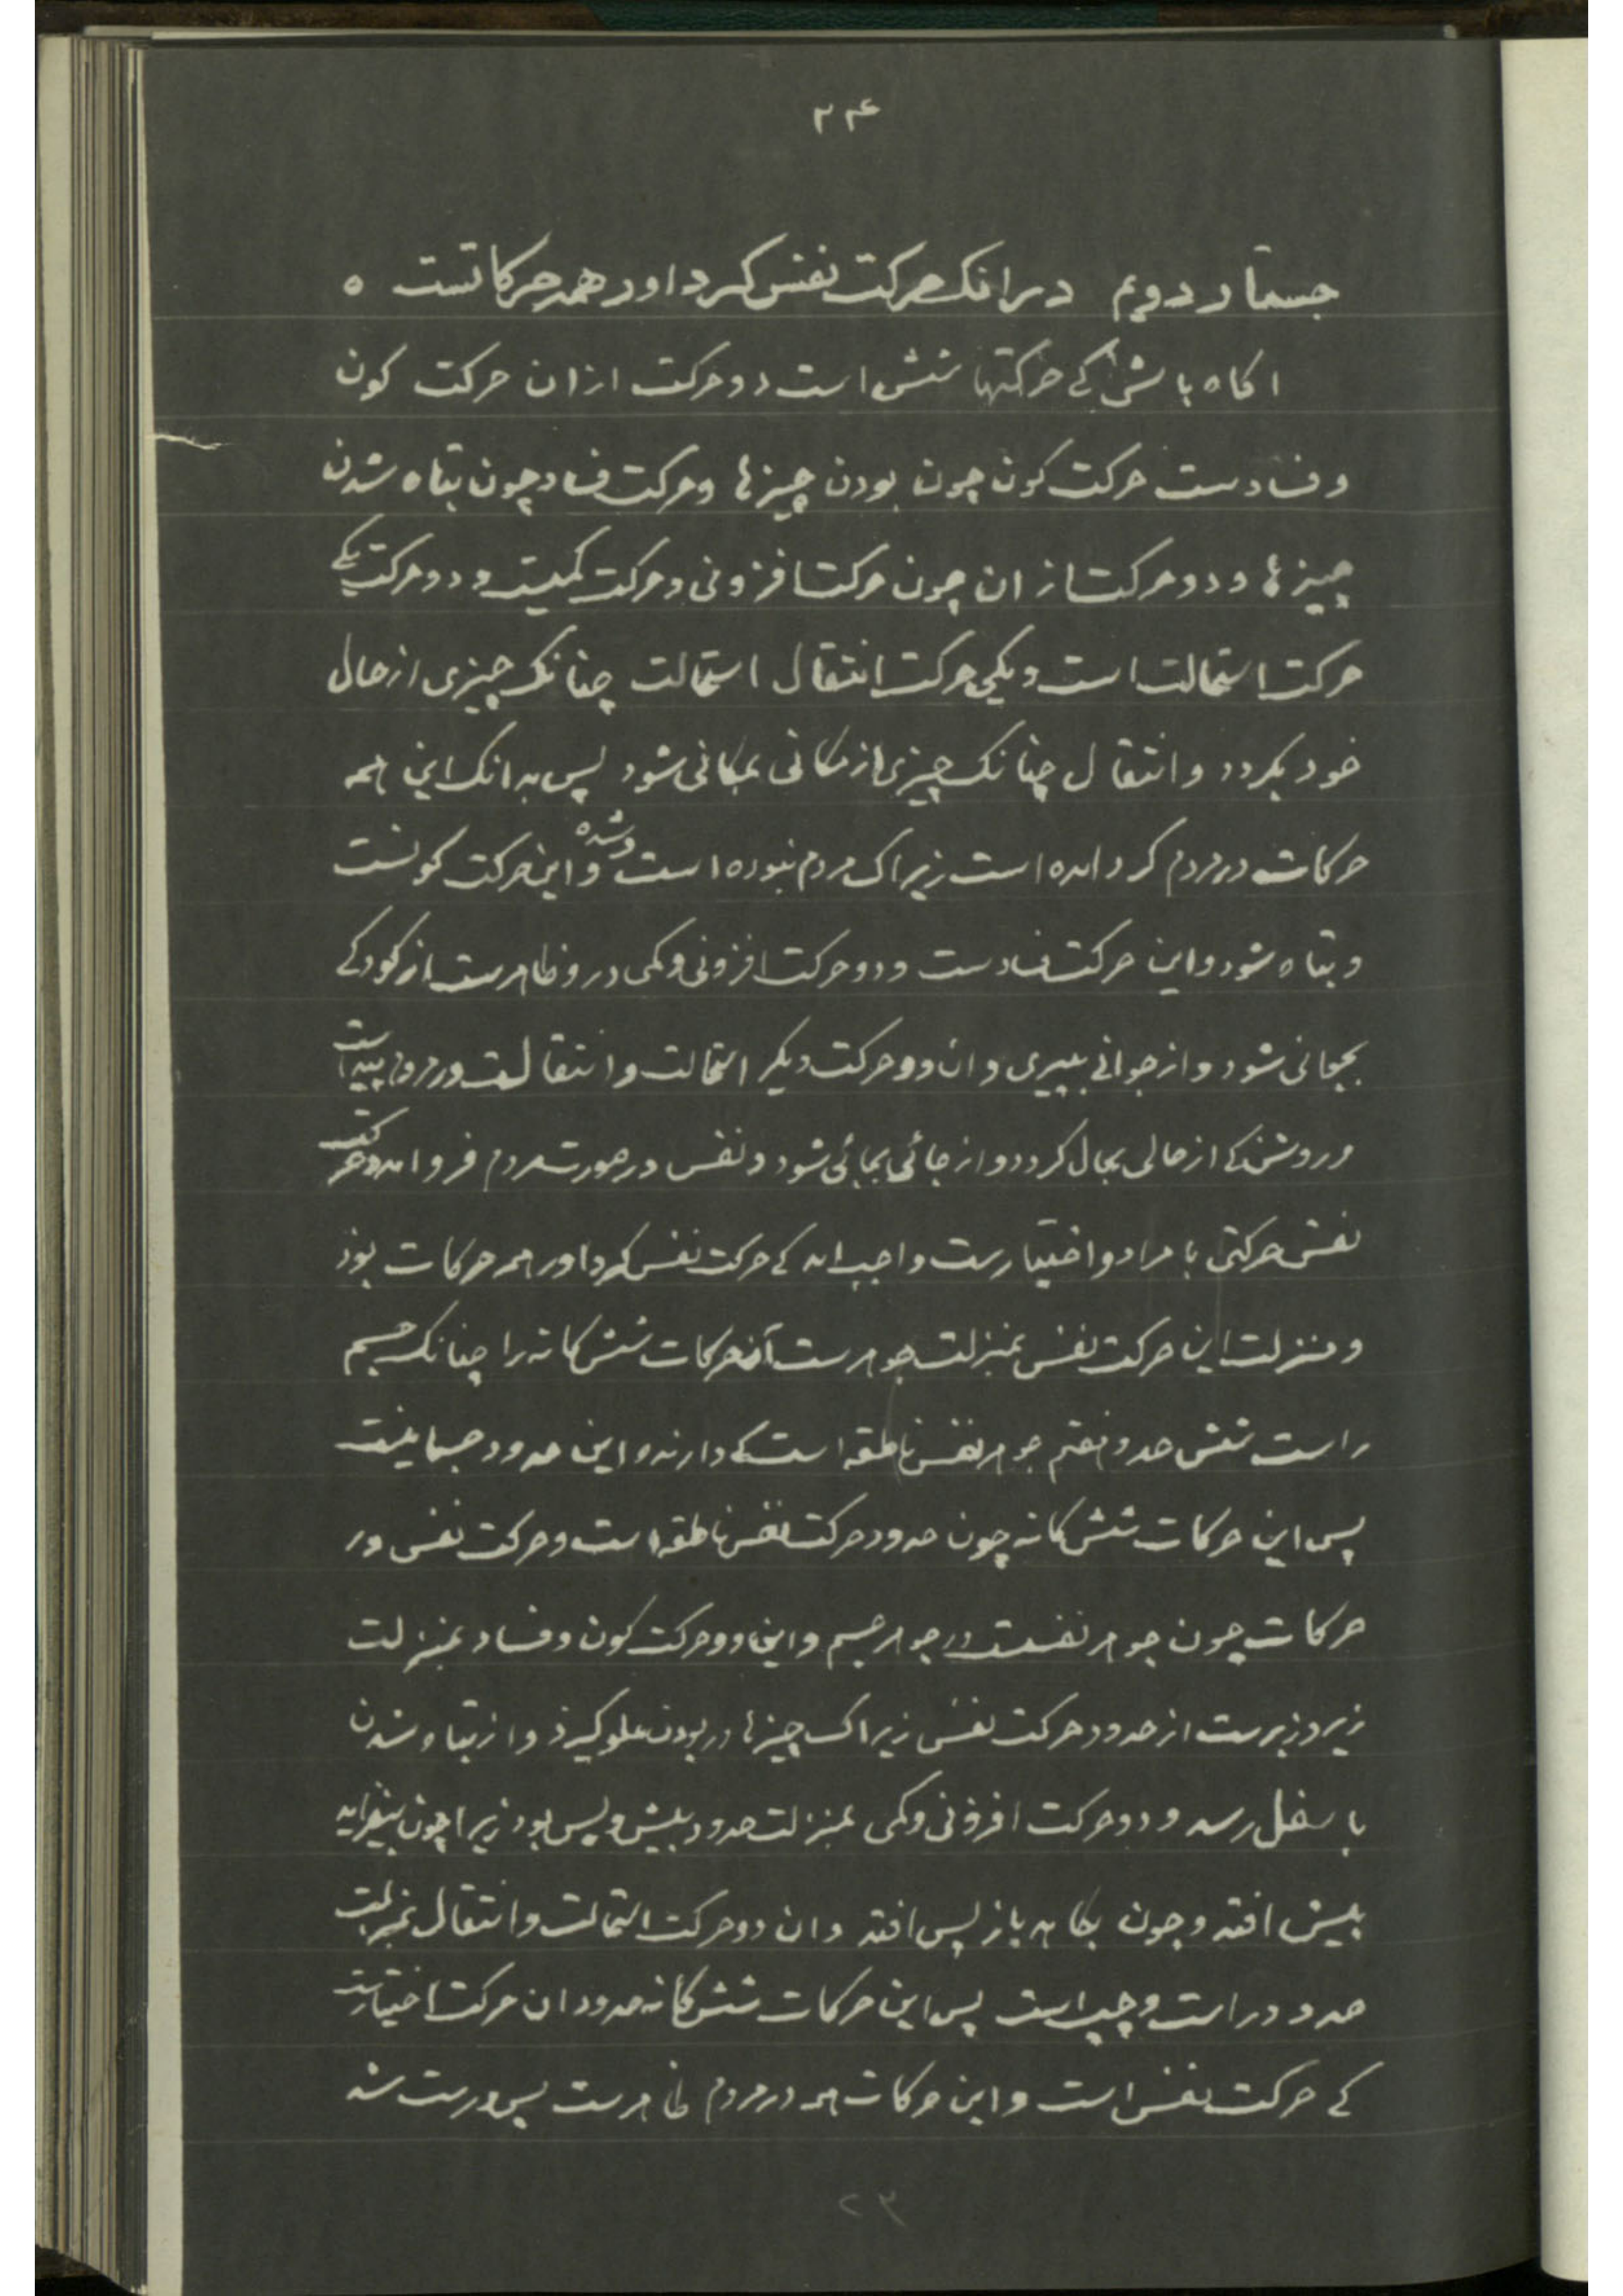 ۲۴
جستار دویم در انک حرکت نفس کرد اور همه حرکاتست ه
اکاه باش کی حرکتها شش است دو حرکت از ان حرکت کون
و فسادست حرکت کون چون بودن چیزها و حرکت فساد چون تباه شدن
چیزها و دو حرکت از ان چون حرکت افزونی و حرکت کمیت و دو حرکت یکی
حرکت استحالت است و یکی حرکت انتقال استحالت چنانک چیزی از حال
خود بکردد و انتقال چنانک چیزی از مکانی بمکانی شود پس بدانک این همه
حرکات در مردم کرد امده است زیراک مردم نبوده است و شده و این حرکت کونست
و تباه شود و این حرکت فسادست و دو حرکت افزونی و کمی درو ظاهرست از کودکی
بجوانی شود و از جوانی بپیری و ان دو حرکت دیکر استحالت و انتقالست در مردم پیداست
و روشن کی از حالی بحال کردد و از جائی بجائی شود و نفس در صورت مردم فرو امد و حرکت
نفس حرکتی با مراد و اختیارست واجب امد کی حرکت نفس کرد اور همه حرکات بود
و منزلت این حرکت نفس بمنزلت جوهرست آن حرکات شش کانه را چنانک جسم
راست شش حد و هفتم جوهر نفس ناطقه است کی دارنده این حدود جسمانیست
پس این حرکات شش کانه چون حدود حرکت نفس ناطقه است و حرکت نفس در
حرکات چون جوهر نفست در جوهر جسم و این دو حرکت کون و فساد بمنزلت
زیر و زبرست از حدود حرکت نفس زیراک چیزها در بودن علو کیرد و از تباه شدن
با سفل رسد و دو حرکت افزونی و کمی بمنزلت حدود پیش و پس بود زیرا چون بیفزاید
پیش افتد و چون بکاهد باز پس افتد و ان دو حرکت استحالت و انتقال بمنزلت
حدود راست و چپ است پس این حرکات شش کانه حدود ان حرکت اختیارست
کی حرکت نفس است و این حرکات همه در مردم ظاهرست پس درست شد
۲۳